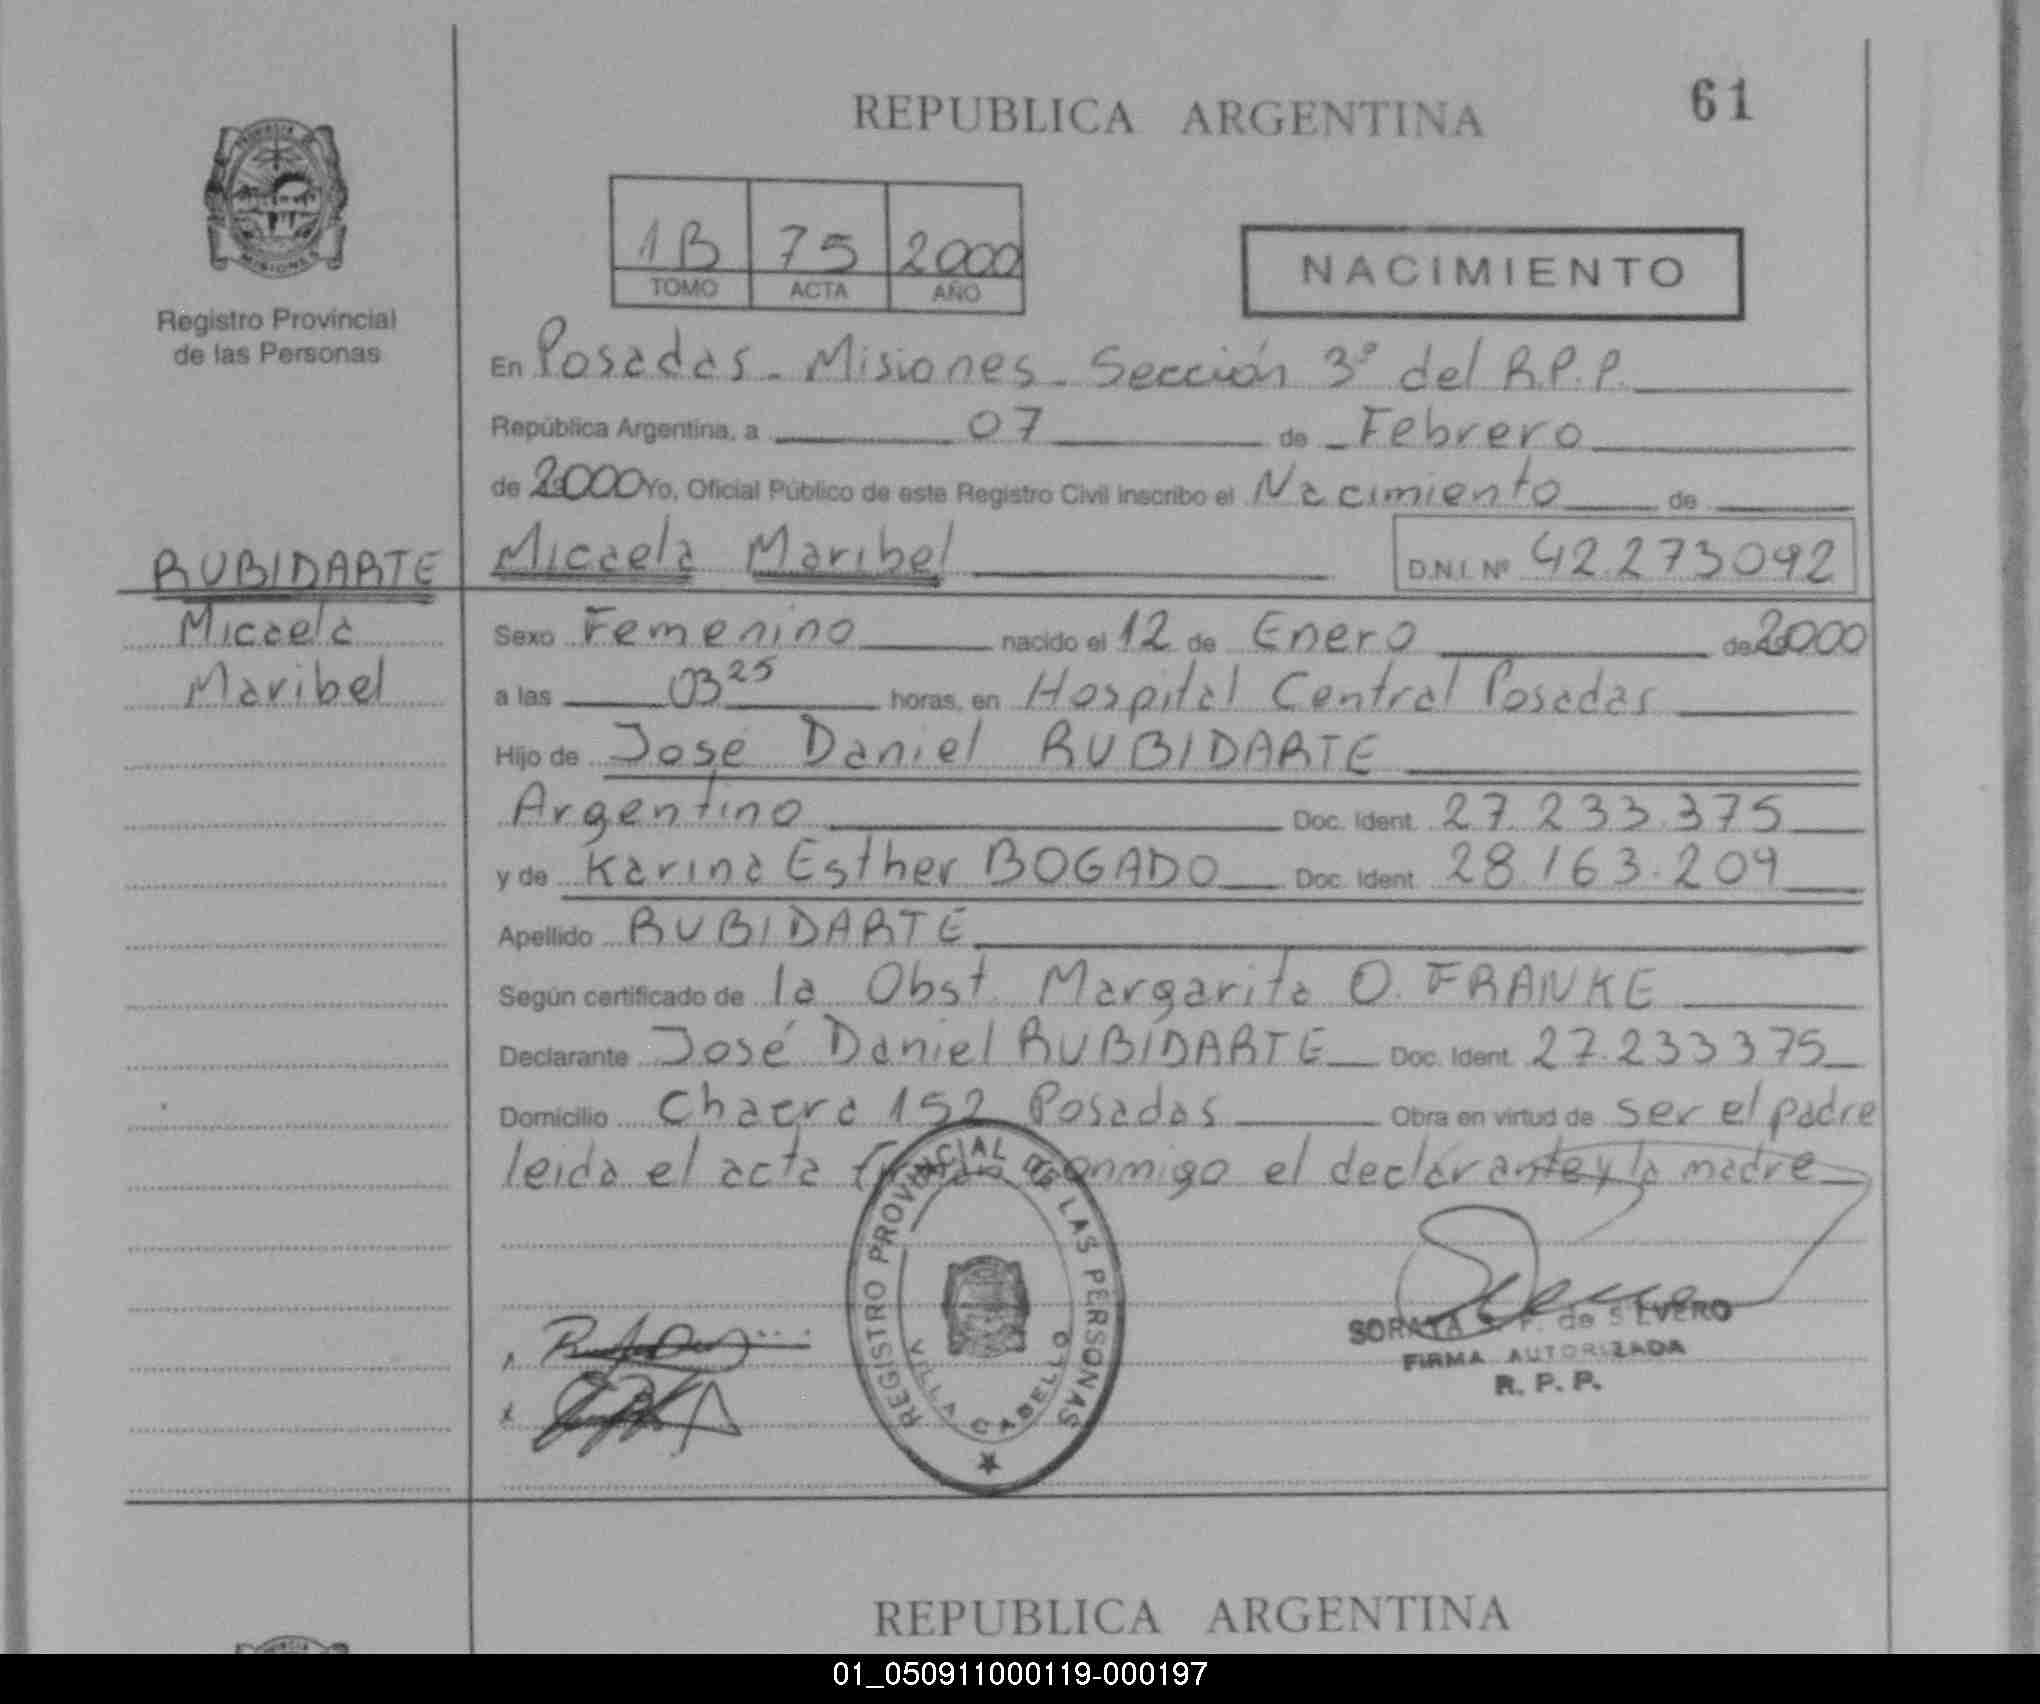 REPUBLICA ARGENTINA
61
MISIONES
Registro Provincial
de las Personas
1B 75 2000
TOMO ACTA AÑO
NACIMIENTO
En Posadas - Misiones - Sección 3º del R.P.P.
República Argentina, a 07 de Febrero
de 2000 Yo, Oficial Público de este Registro Civil inscribo el Nacimiento de
RUBIDARTE
Micaela
Maribel
Micaela Maribel D.N.I. Nº 42.273092
Sexo Femenino nacido el 12 de Enero de 2000
a las 03 25 horas, en Hospital Central Posadas
Hijo de José Daniel RUBIDARTE
Argentino Doc. Ident. 27.233.375
y de Karina Esther BOGADO Doc. Ident. 28.163.209
Apellido RUBIDARTE
Según certificado de la Obst. Margarita O. FRANKE
Declarante José Daniel RUBIDARTE Doc. Ident. 27.233375
Domicilio Chacra 152 Posadas Obra en virtud de ser el padre
leida el acta conmigo el declarante y la madre
REGISTRO PROVINCIAL DE LAS PERSONAS
VILLA CABELLO
SORAYA de SILVERO
FIRMA AUTORIZADA
R. P. P.
REPUBLICA ARGENTINA
01_050911000119-000197